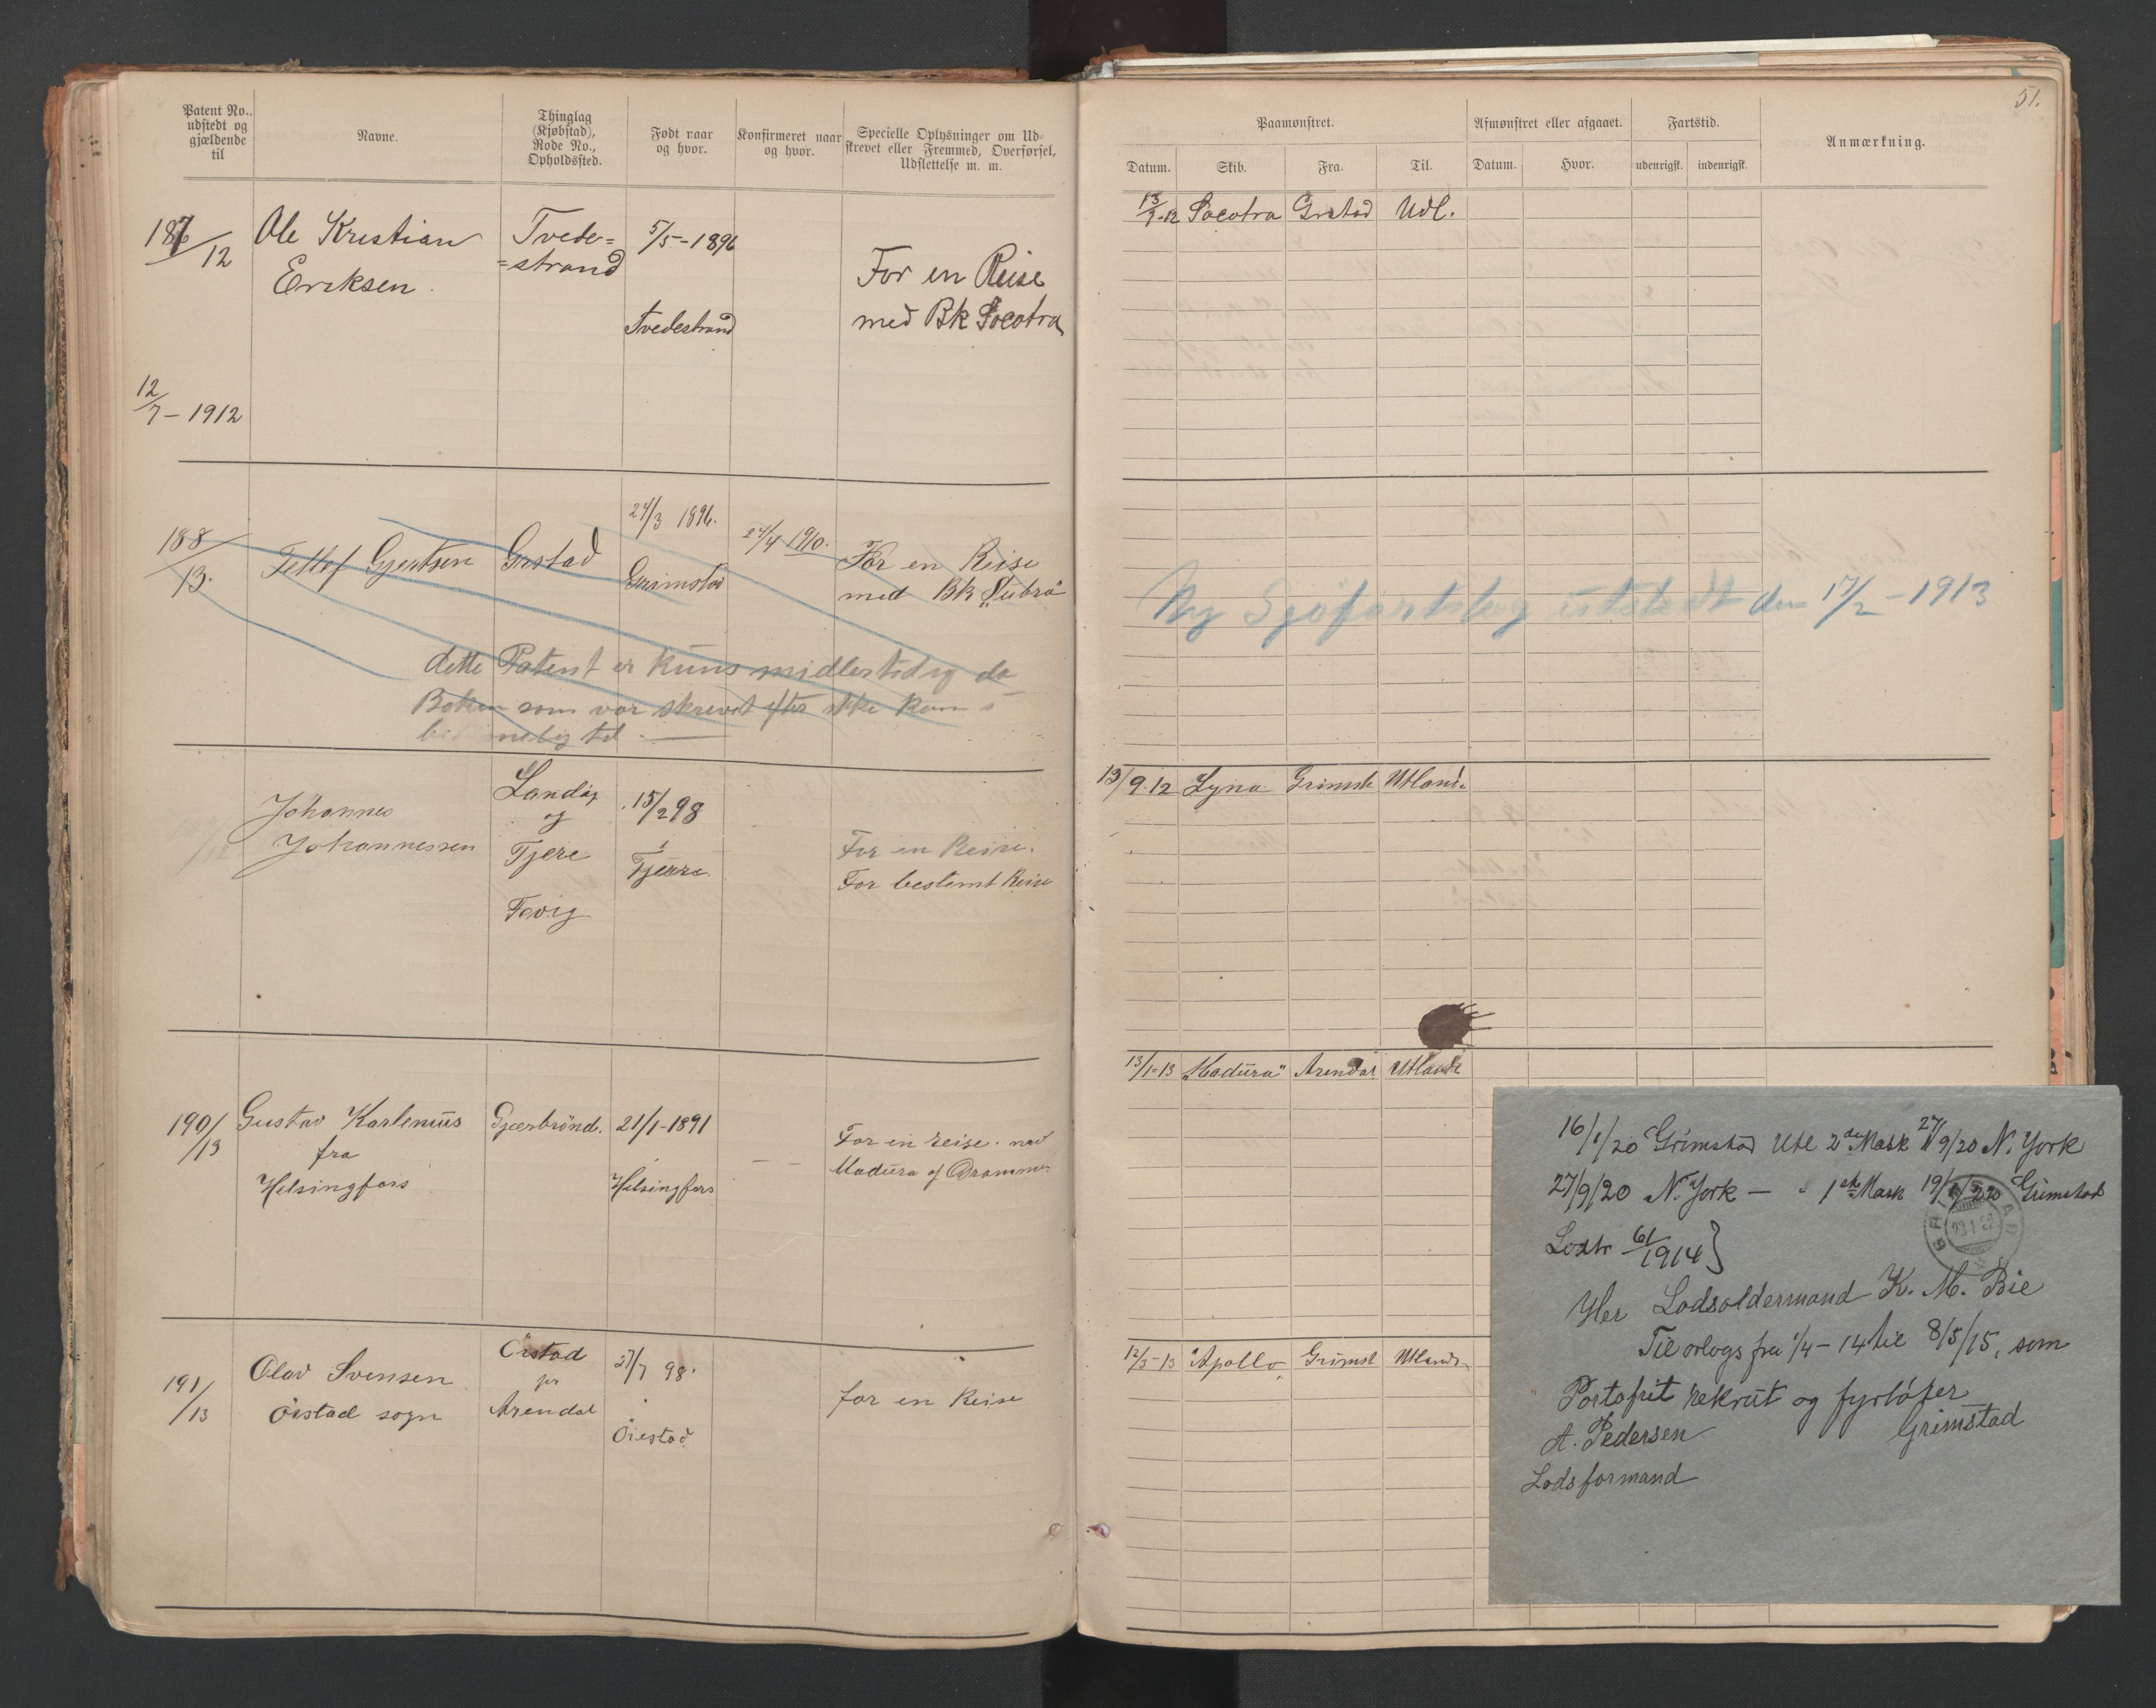 Patent No.,
udstedt og
gjældende
til
Navne.
Thinglag
(Kjøbstad),
Rode No.,
Opholdssted.
Født naar
og hvor.
Konfirmeret naar
og hvor.
Specielle Oplysninger om Ud-
skrevet eller Fremmed, Overførsel,
Udslettelse m. m.
187/12
Ole Kristian
Eriksen.
Tvede=
=strand
5/5-1896
Tvedestrand
For en Reise
med Bk Socotra
12/7-1912
188/13.
Tellef Gjertsen
Grstad
24/3 1896.
Grimstad
24/4 1910.
For en Reise
med Bk „Subra"
dette Patent er kuns midlertidig da
Boken som var skrevet efter ikke kom
til
Johannes
Johannessen
Landvig
og
Fjere
Fevig
15/2 98
Fjære
For en Reise.
For bestemt Reise
190/13
Gustav Karlenius
fra
Helsingfors
Gjærbrönd.
21/1-1891
Helsingfors
For en reise. med
Madura af
191/13
Olav Svensen
Öistad sogn
Öistad
pr
Arendal
27/7 98.
Öiestad
for en Reise
51.
Paamønstret.
Afmønstret eller afgaaet.
Fartstid.
Anmærkning.
Datum.
Skib.
Fra.
Til.
Datum.
Hvor.
udenrigsk.
indenrigsk.
13/7-12 Socotra Grstad Udl.
Ny Sjøfartsbog utstedt den 17/2-1913
13/9.12 Lyna Grimst Utland.
13/1-13 „Madura" Arendal Utlande
12/3-13 "Apollo„ Grimst Utland
16/1/20 Grimstad Utl 2de Mask 27/9/20 N. York
27/9/20 N. York — " 1ste Mask 19/1/22 Grimstad
GRIMSTAD
23.1.22
61/1914}
Her Lodsoldermand K. M. Bie
Til orlogs fra 1/4-14 til 8/5/15, som
Portofrit rekrut og fyrløfer
A. Pedersen
Grimstad
Lodsformand